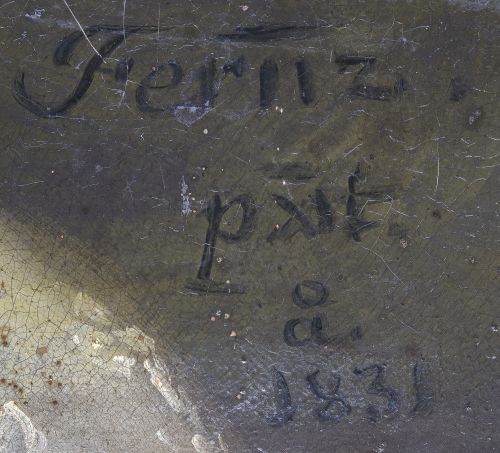 Fernz.
pxit.
å.
1831